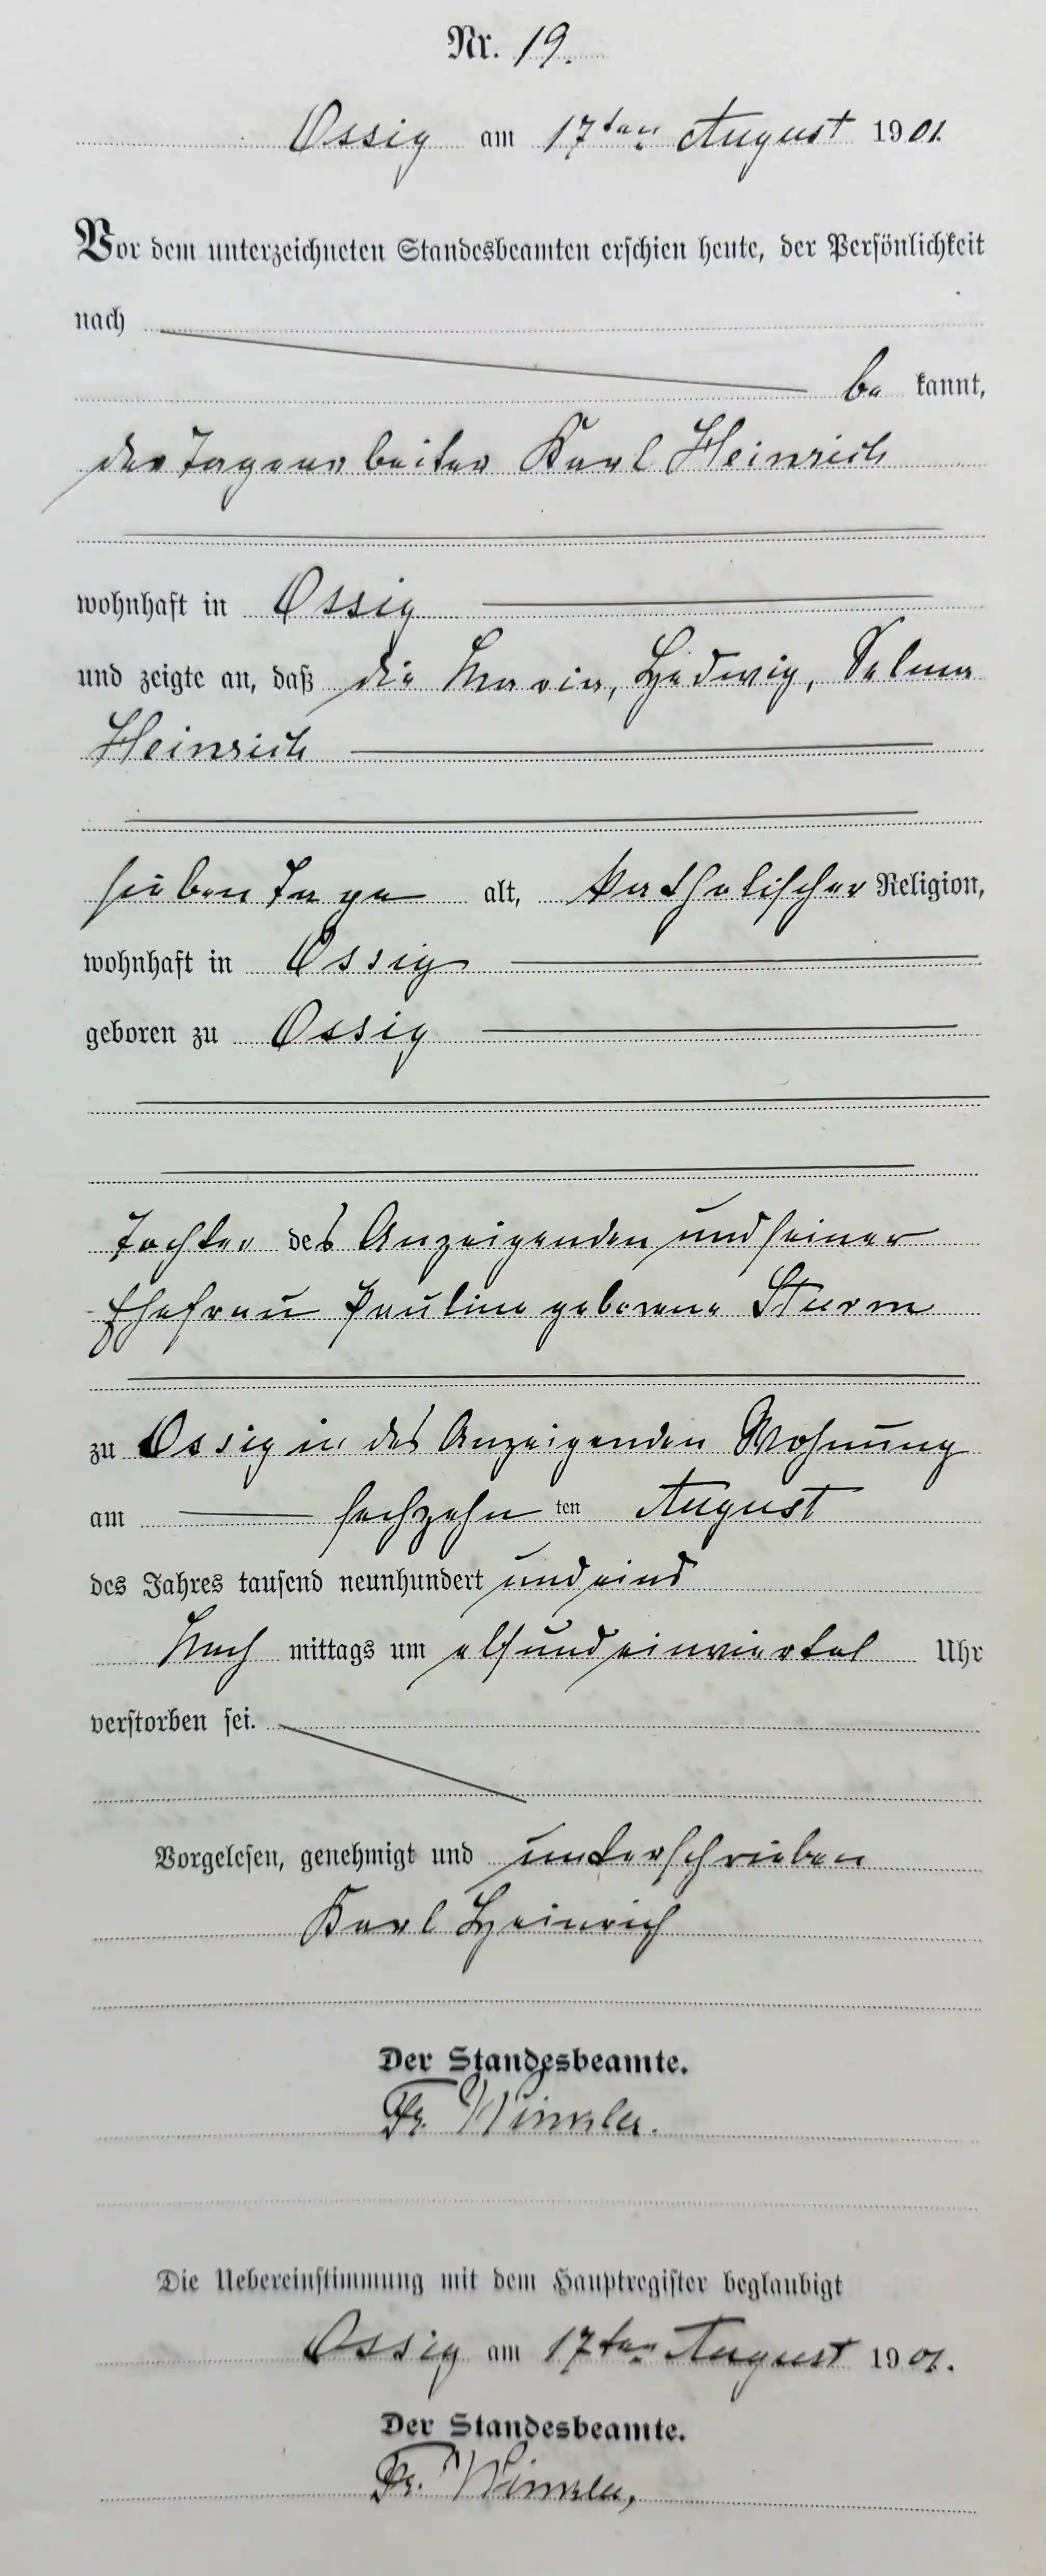 Nr. 19.
Ossig am 17ten August 1901.
Vor dem unterzeichneten Standesbeamten erschien heute, der Persönlichkeit
nach
be kannt,
der Tagearbeiter Karl Heinrich
wohnhaft in Ossig
und zeigte an, daß die Maria, Hedwig, Selma
Heinrich
sieben Tage alt, katholischer Religion,
wohnhaft in Ossig
geboren zu Ossig
Tochter des Anzeigenden und seiner
Ehefrau Pauline geborene Sturm
zu Ossig in des Anzeigenden Wohnung
am sechzehn ten August
des Jahres tausend neunhundert und eins
Nach mittags um elf und einviertel Uhr
verstorben sei.
Vorgelesen, genehmigt und unterschrieben
Karl Heinrich
Der Standesbeamte.
Fr. Winkler.
Die Uebereinstimmung mit dem Hauptregister beglaubigt
Ossig am 17ten August 1901.
Der Standesbeamte.
Fr. Winkler,